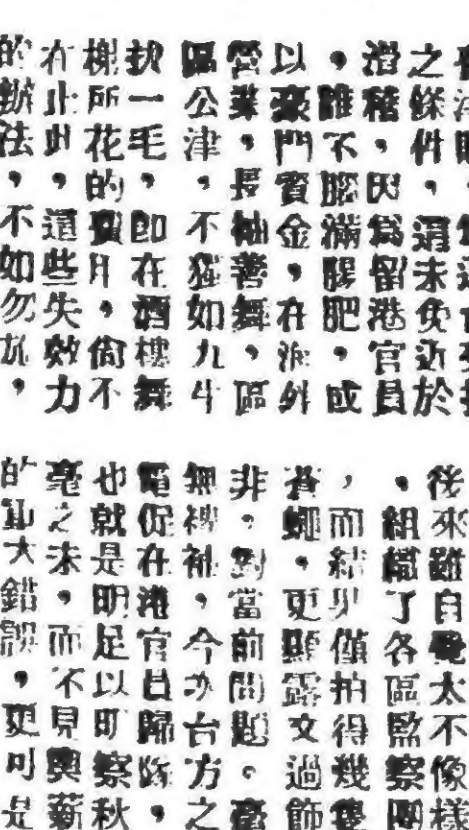 之條件，謂未免近於
滑稽，因為留港官員
，誰不腦滿腸肥，或
以豪門資金，在海外
營業，長袖善舞，區
區公津，不如九牛
拔一毛，即在酒樓舞
榭所花的費用，倘不
在止此，這些失效力
的辦法，不如勿，
後來雖自覺太不像樣
，組織了各區監察團
，而結果僅拍得幾隻
蒼蠅，更顯露文過飾
非。對當前問題。毫
無裨補，今次台方之
電促在港官員歸隊，
也就是明足以明察秋
毫之末，而不見輿薪
的重大錯誤，更可是